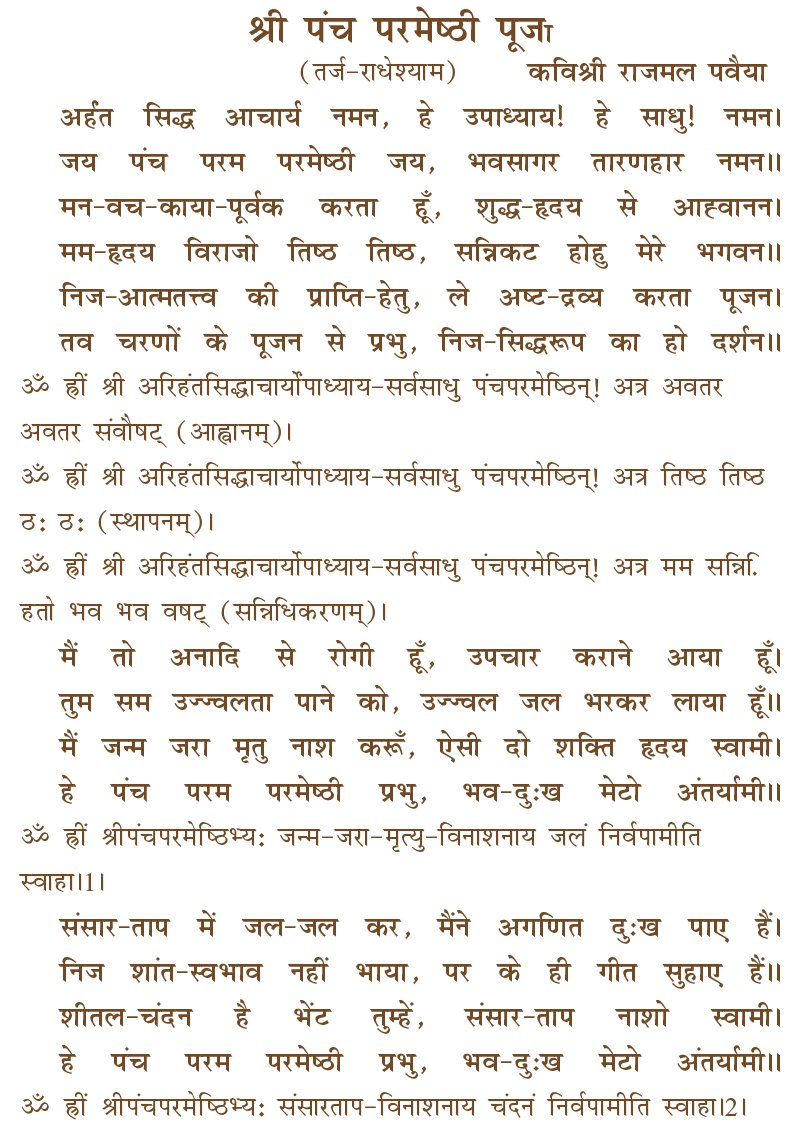 श्री पंच परमेष्ठी पूजा
(तर्ज-राधेश्याम) कविश्री राजमल पवैया
अर्हंत सिद्ध आचार्य नमन, हे उपाध्याय! हे साधु! नमन।
जय पंच परम परमेष्ठी जय, भवसागर तारणहार नमन॥
मन-वच-काया-पूर्वक करता हूँ, शुद्ध-हृदय से आह्वानन।
मम-हृदय विराजो तिष्ठ तिष्ठ, सन्निकट होहु मेरे भगवन॥
निज-आत्मतत्त्व की प्राप्ति-हेतु, ले अष्ट-द्रव्य करता पूजन।
तव चरणों के पूजन से प्रभु, निज-सिद्धरूप का हो दर्शन॥
ॐ ह्रीं श्री अरिहंतसिद्धाचार्योंपाध्याय-सर्वसाधु पंचपरमेष्ठिन्! अत्र अवतर
अवतर संवौषट् (आह्वानम्)।
ॐ ह्रीं श्री अरिहंतसिद्धाचार्योपाध्याय-सर्वसाधु पंचपरमेष्ठिन्! अत्र तिष्ठ तिष्ठ
ठः ठः (स्थापनम्)।
ॐ ह्रीं श्री अरिहंतसिद्धाचार्योपाध्याय-सर्वसाधु पंचपरमेष्ठिन्! अत्र मम सन्नि
हतो भव भव वषट् (सन्निधिकरणम्)।
मैं तो अनादि से रोगी हूँ, उपचार कराने आया हूँ।
तुम सम उज्ज्वलता पाने को, उज्ज्वल जल भरकर लाया हूँ॥
मैं जन्म जरा मृतु नाश करूँ, ऐसी दो शक्ति हृदय स्वामी।
हे पंच परम परमेष्ठी प्रभु, भव-दुःख मेटो अंतर्यामी॥
ॐ ह्रीं श्रीपंचपरमेष्ठिभ्यः जन्म-जरा-मृत्यु-विनाशनाय जलं निर्वपामीति
स्वाहा।1।
संसार-ताप में जल-जल कर, मैंने अगणित दुःख पाए हैं।
निज शांत-स्वभाव नहीं भाया, पर के ही गीत सुहाए हैं॥
शीतल-चंदन है भेंट तुम्हें, संसार-ताप नाशो स्वामी।
हे पंच परम परमेष्ठी प्रभु, भव-दुःख मेटो अंतर्यामी॥
ॐ ह्रीं श्रीपंचपरमेष्ठिभ्यः संसारताप-विनाशनाय चंदनं निर्वपामीति स्वाहा।2।